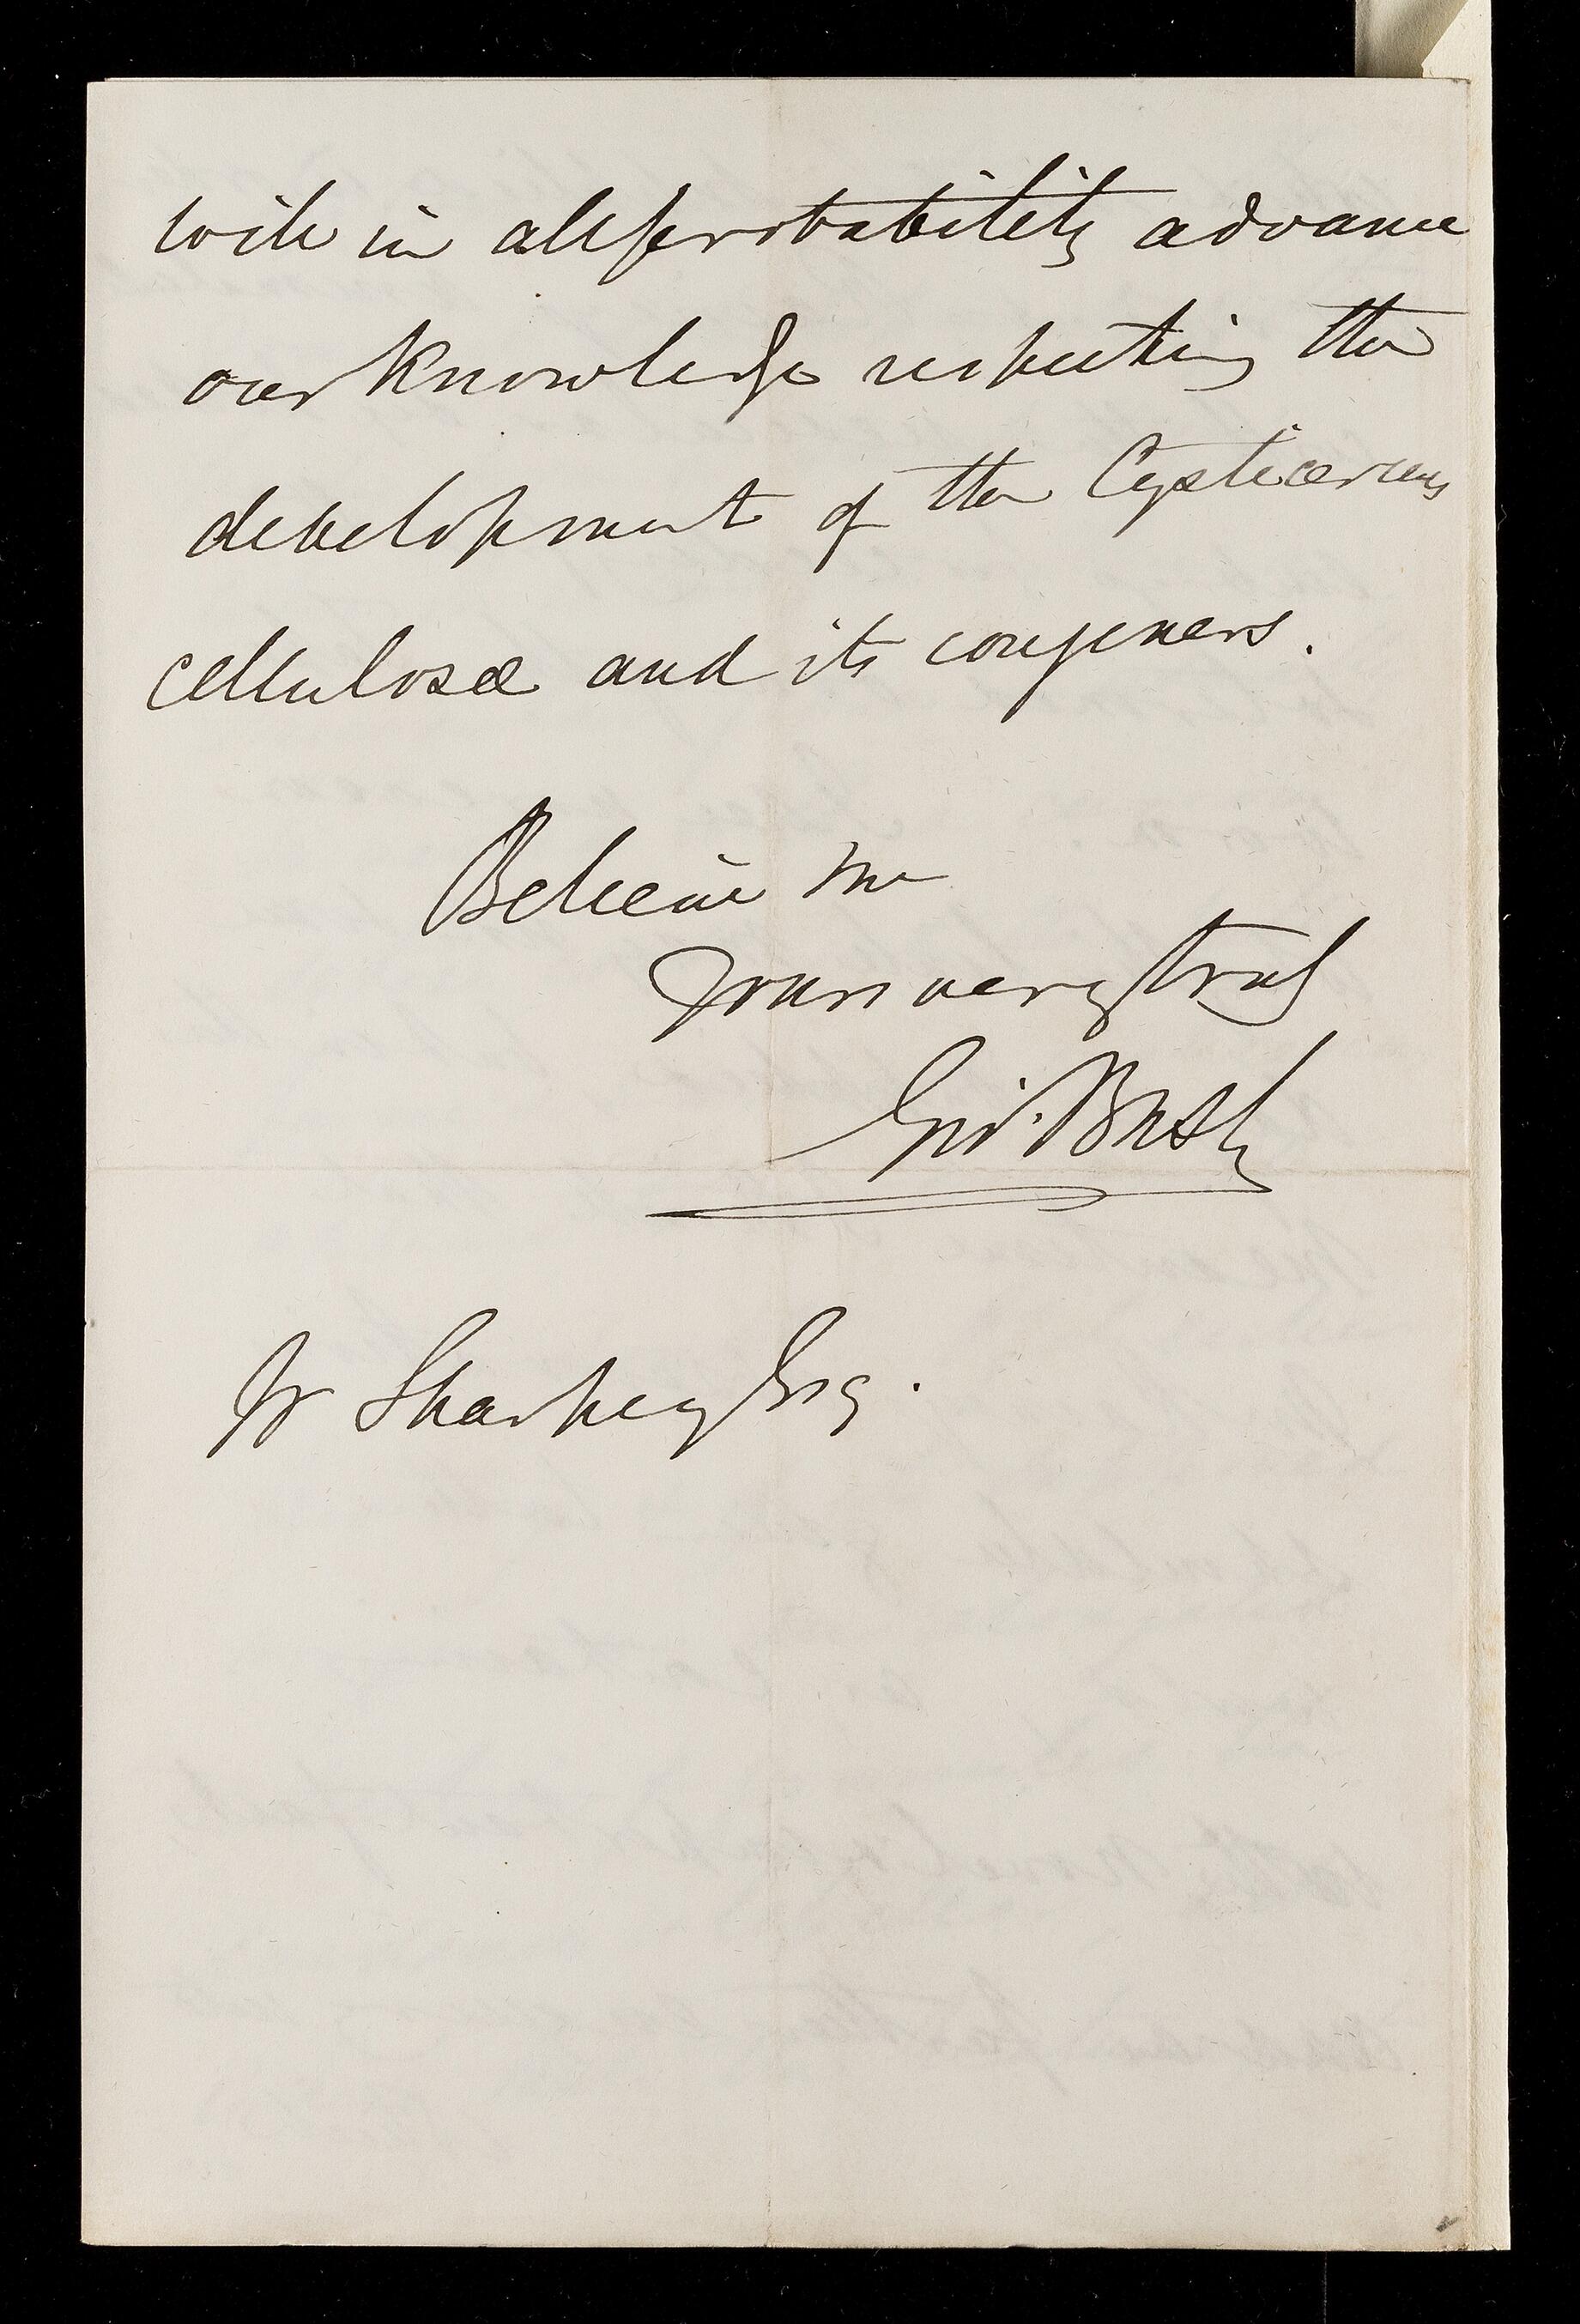 will in all probability advance
our knowledge respecting the
development of the Cysticercus
cellulosæ and its congeners.
Believe me
Yours very truly
Geo. Busk
W Sharpey Esq.